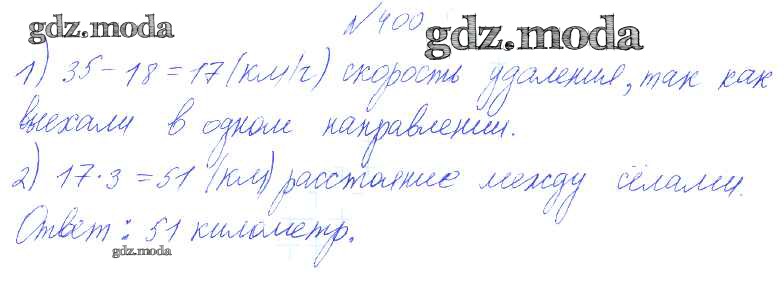 №400
gdz.moda
gdz.moda
1) 35-18=17 (км/ч) скорость удаления, так как
выехали в одном направлении.
2) 17·3=51 (км) расстояние между сёлами.
Ответ: 51 километр.
gdz.moda